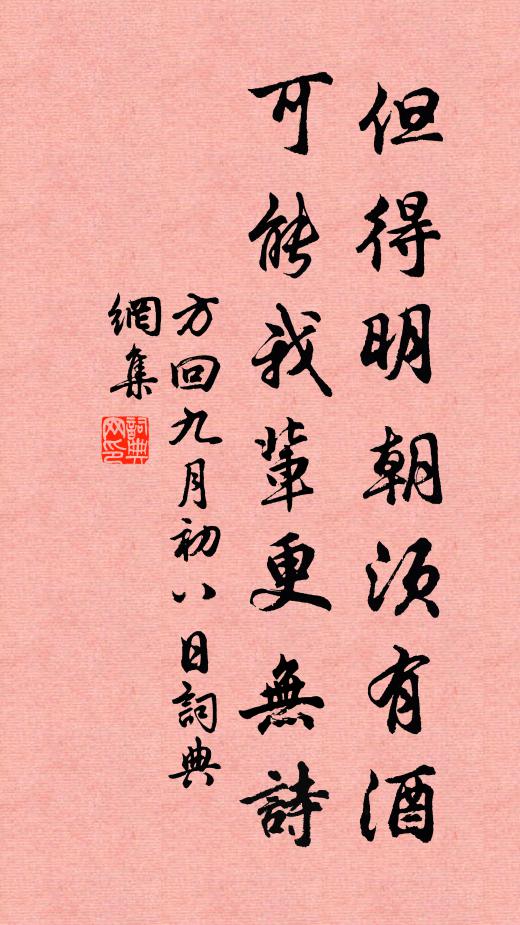 但得明朝須有酒
可能我輩更無詩
方回九月初八日詞典
網集
詞典
网印